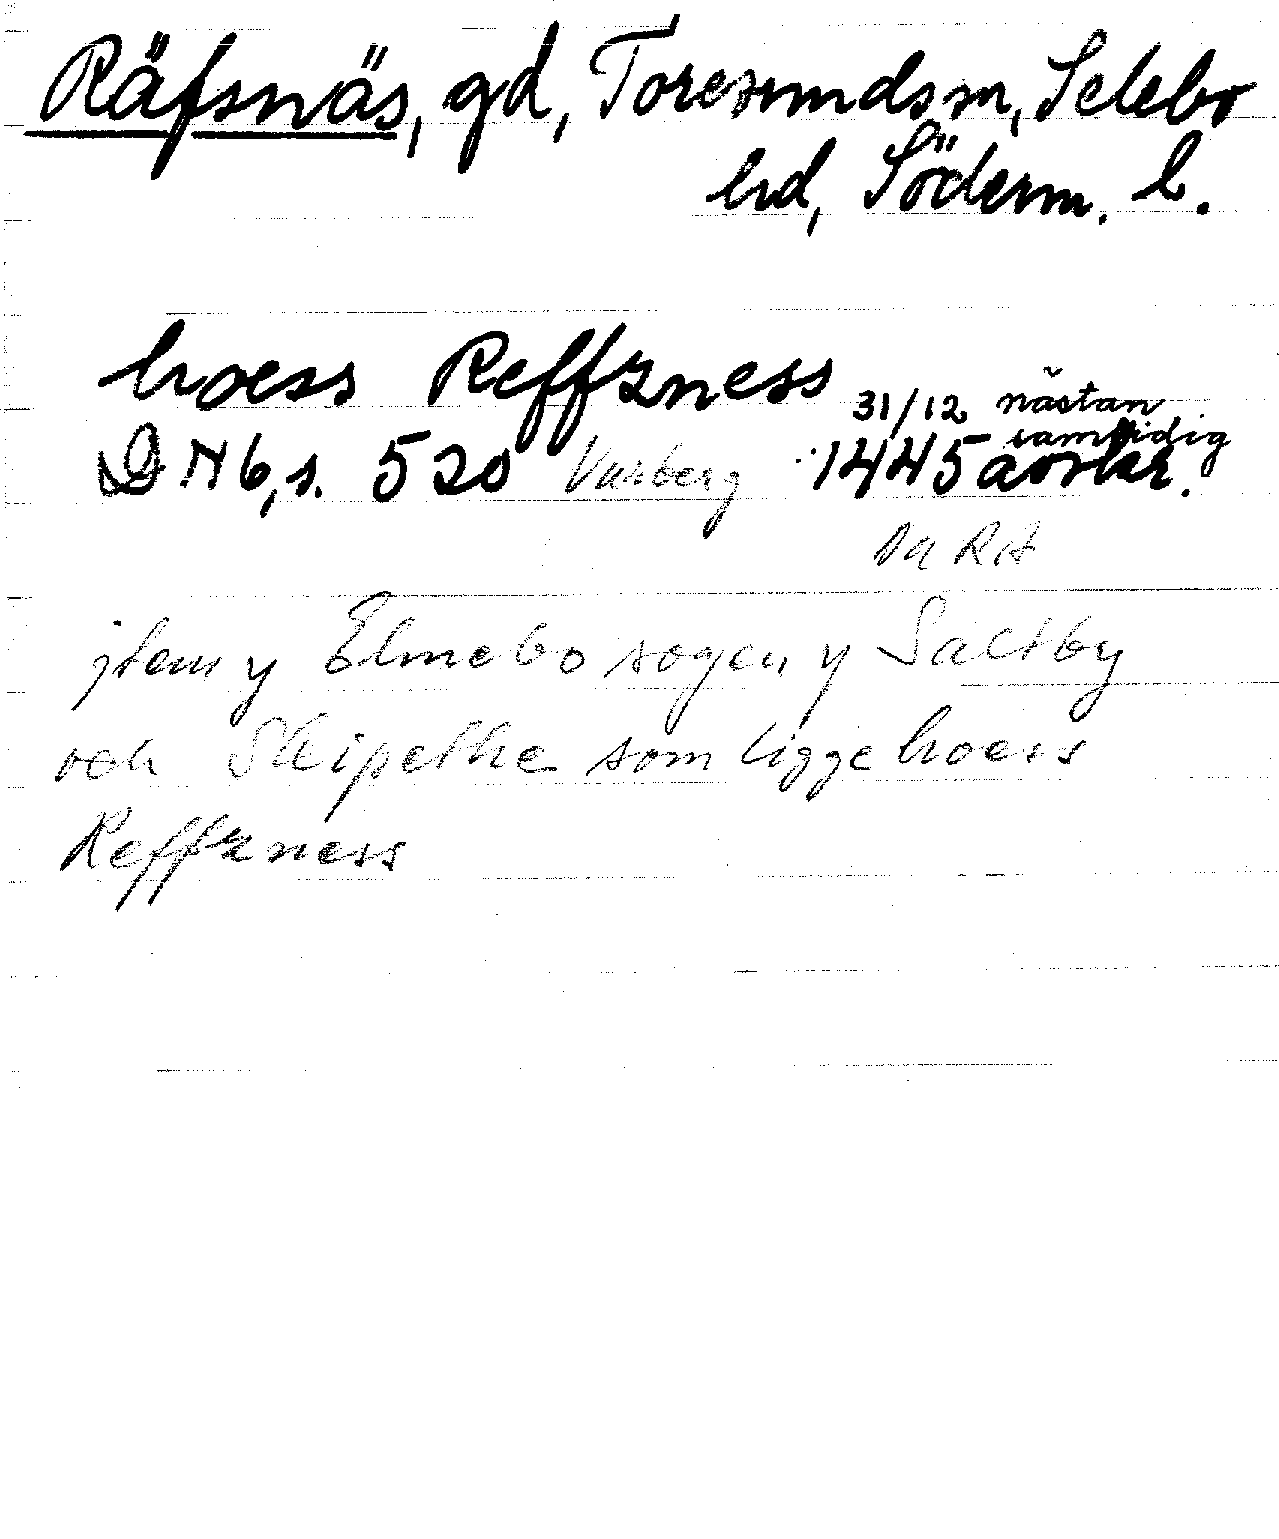 Räfsnäs, gd, Toresundssn, Selebo
hd, Söderm. l.
hoess Reffzness
31/12 nästan
samtidig
DN 6, s. 520 Varberg 1445 avskr.
Da RA
jtem y Elmebo sogen y Saltby
och Skipethe som ligge hoess
Reffzness